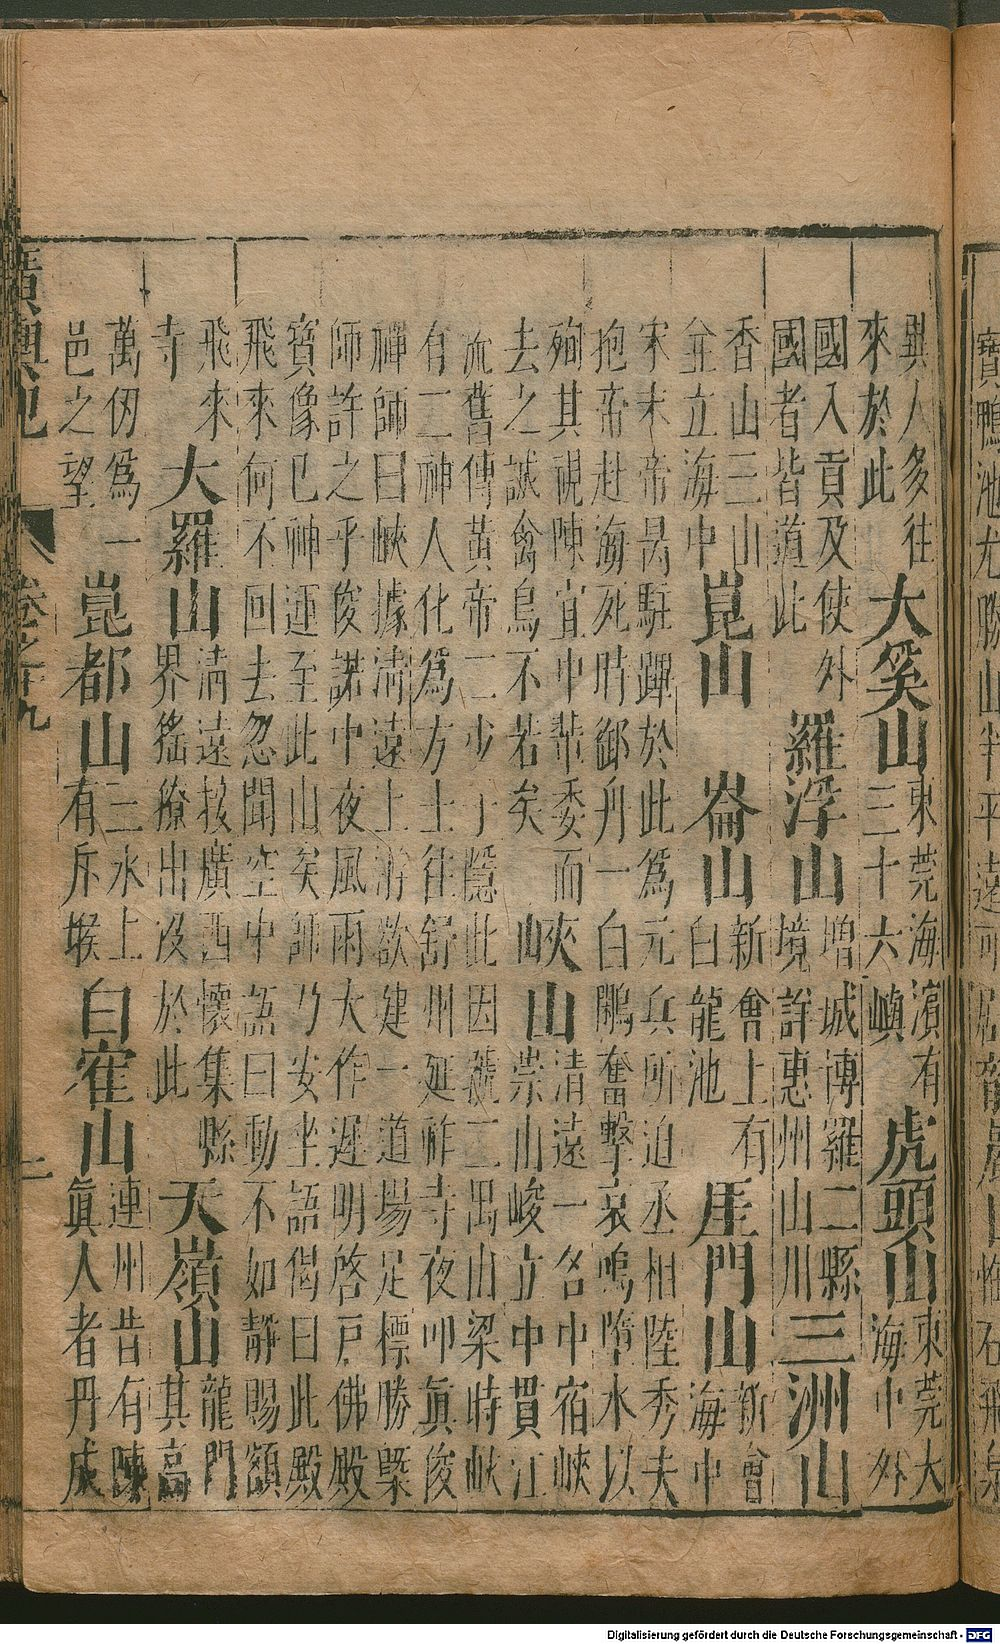 異人多往來於此大奚山東莞海濵有三十六嶼虎頭山東莞大海中外
國入貢及使外國者皆道此羅浮山增城博羅二縣境詳惠州山川三洲山
香山三山並立海中崑山崙山新會上有白龍池厓門山新會海中
宋末帝昺駐蹕於此爲元兵所迫丞相陸秀夫抱帝赴海死時御舟一白鷴奮擊哀鳴墮水以
殉其視陳宜中輩委而去之誠禽鳥不若矣峽山清遠一名中宿峽崇山峻立中貫江
流舊傳黃帝二少子隱此因號二禺山梁時峽有二神人化爲方士往舒州延祚寺夜叩眞俊
禪師曰峽據清遠上游欲建一道場足標勝槩師許之乎俊諾中夜風雨大作遲明啓戶佛殿
寶像已神運至此山矣師乃安坐語偈曰此殿飛來何不回去忽聞空中語曰動不如靜賜額
飛來寺大羅山清遠接廣西懷集縣界猺獠出沒於此天嶺山龍門其高
萬仞爲一邑之望崑都山三水上有斥堠白雀山連州昔有陳眞人者丹成
廣輿記 卷之十九 二
Digitalisierung gefördert durch die Deutsche Forschungsgemeinschaft - DFG